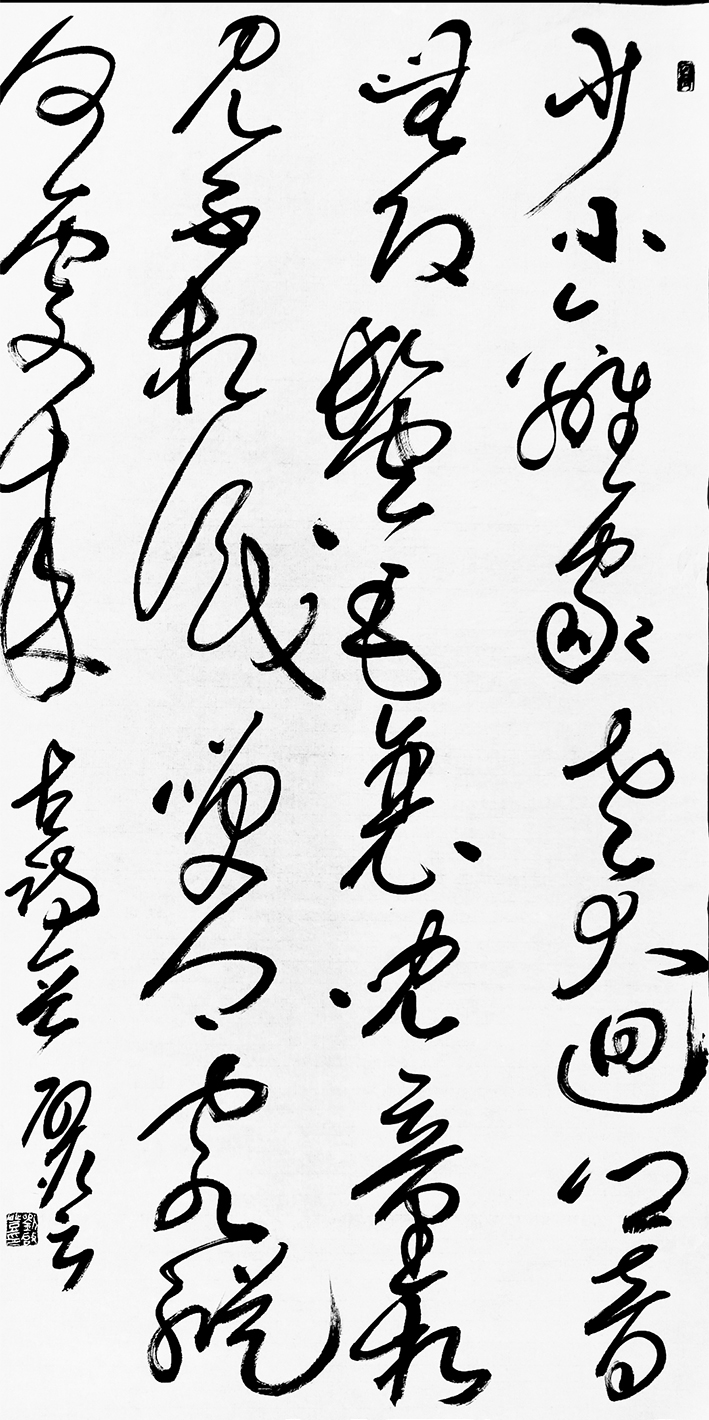 少小離家老大迴鄉音
無改鬢毛衰兒童相
見不相識笑問客從
何處來
古詩一首